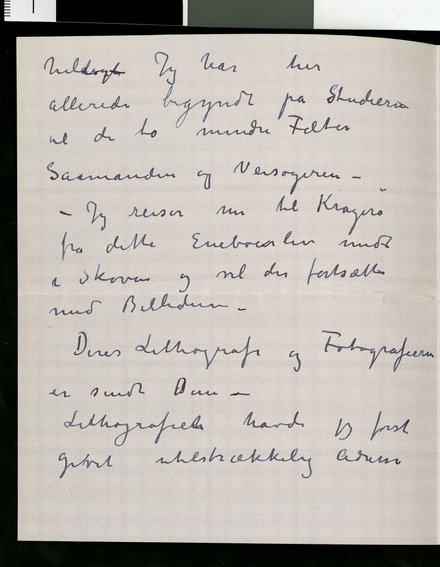 Jeg har her
allerede begyndt på Studierne
til de to mindre Felter
Saamanden og Versogeren –
– Jeg reiser nu til Kragerø
fra dette Eneboerliv midt
i Skoven og vil der fortsætte
med Billederne. –
Deres Lithografi og Fotografierne
er sendt Dem –
Lithografiet havde jeg først
givet utilstrækkelig Adresse